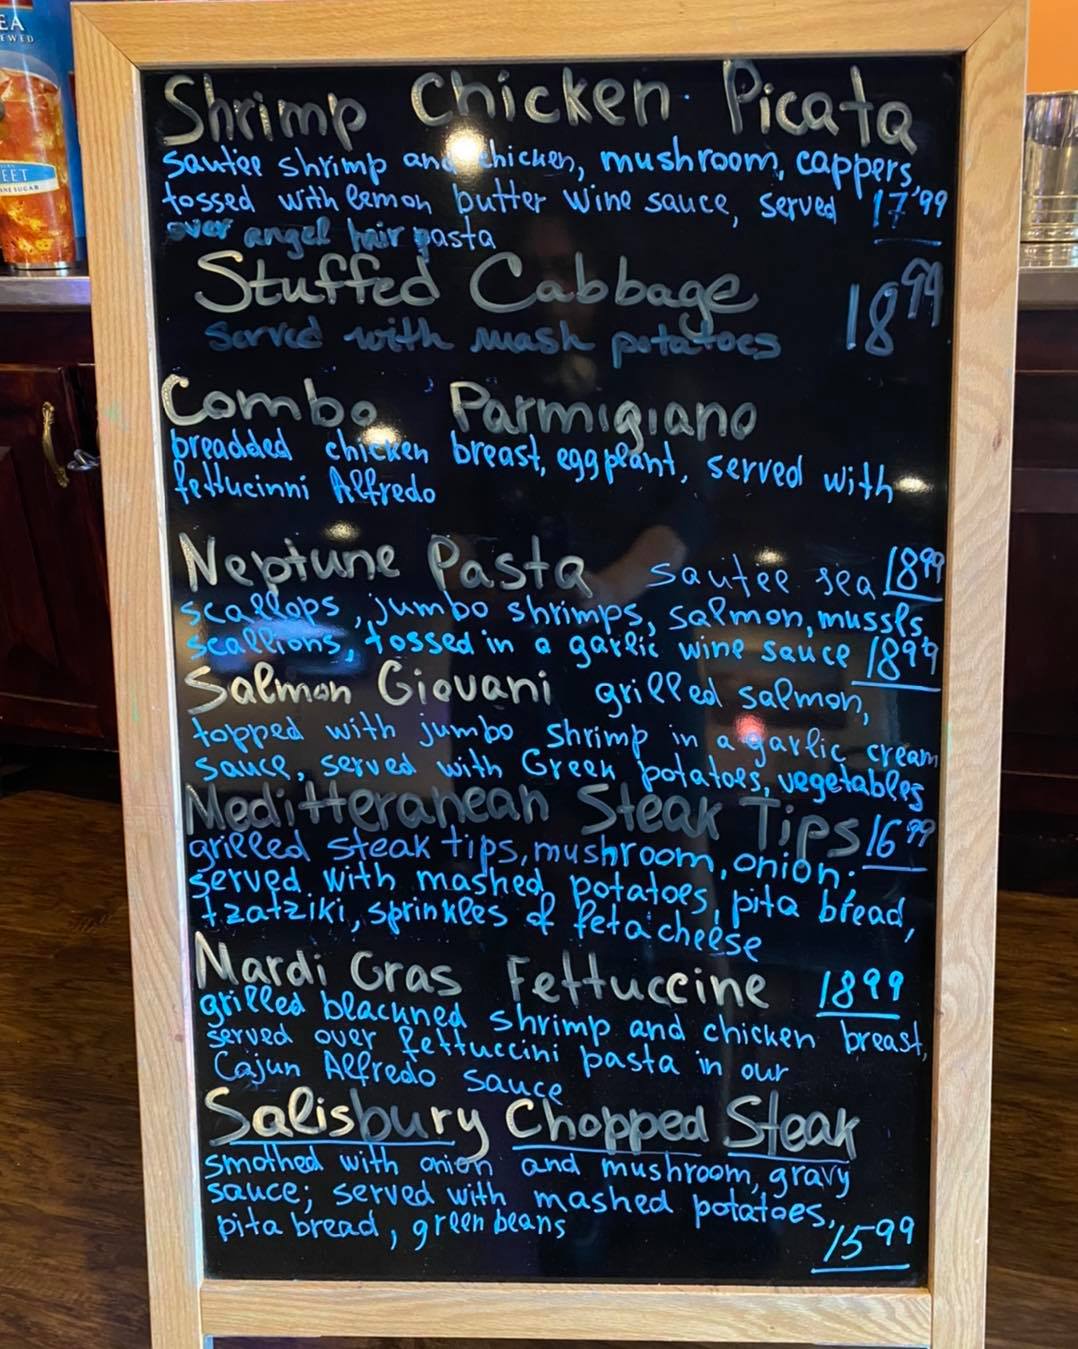 EA
EWED
EET
Shrimp Chicken Picata
sautee shrimp and chicken, mushroom, cappers,
tossed with lemon butter wine sauce, served 17.99
over angel hair pasta
Stuffed Cabbage 18 99
served with mash potatoes
Combo Parmigiano
breadded chicken breast, eggplant, served with
fettucinni Alfredo
Neptune Pasta sautee sea 18 99
scallops, jumbo shrimps, salmon, mussls,
scallions, tossed in a garlic wine sauce 18 99
Salmon Giovani grilled salmon,
topped with jumbo shrimp in a garlic cream
sauce, served with Greek potatoes, vegetables
Meditteranean Steak Tips 16 99
grilled steak tips, mushroom, onion;
served with mashed potatoes, pita bread,
tzatziki, sprinkles of feta cheese
Mardi Gras Fettuccine 18 99
grilled blackned shrimp and chicken breast,
served over fettuccini pasta in our
Cajun Alfredo sauce
Salisbury Chopped Steak
smothed with onion and mushroom, gravy
sauce; served with mashed potatoes,
pita bread, green beans 15 99